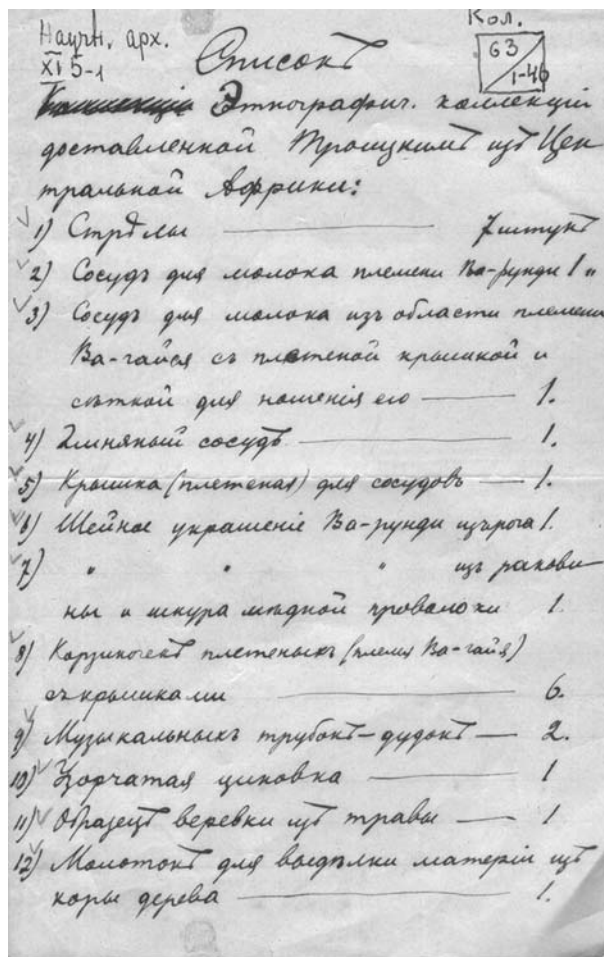 Научн. арх.
XI 5-1
Кол.
63
1-46
Списокъ
Этнографич. коллекціи
доставленной Троицкимъ изъ Цен
тральной Африки:
1) Стрѣлы — 7 штукъ
2) Сосудъ для молока племени Ва-рунди 1 "
3) Сосудъ для молока изъ области племени
Ва-гайся съ плетеной крышкой и
сѣткой для ношенія его — 1.
4) Глиняный сосудъ — 1.
5) Крышка (плетеная) для сосудовъ — 1.
6) Шейное украшеніе Ва-рунди изъ рога 1.
7) " " " изъ ракови
ны и шнура мѣдной проволоки 1.
8) Корзиночекъ плетеныхъ (племя Ва-гайя)
съ крышками — 6.
9) Музыкальныхъ трубокъ-дудокъ — 2.
10) Узорчатая циновка — 1
11) Образецъ веревки изъ травы — 1
12) Молотокъ для выдѣлки матеріи изъ
коры дерева — 1.